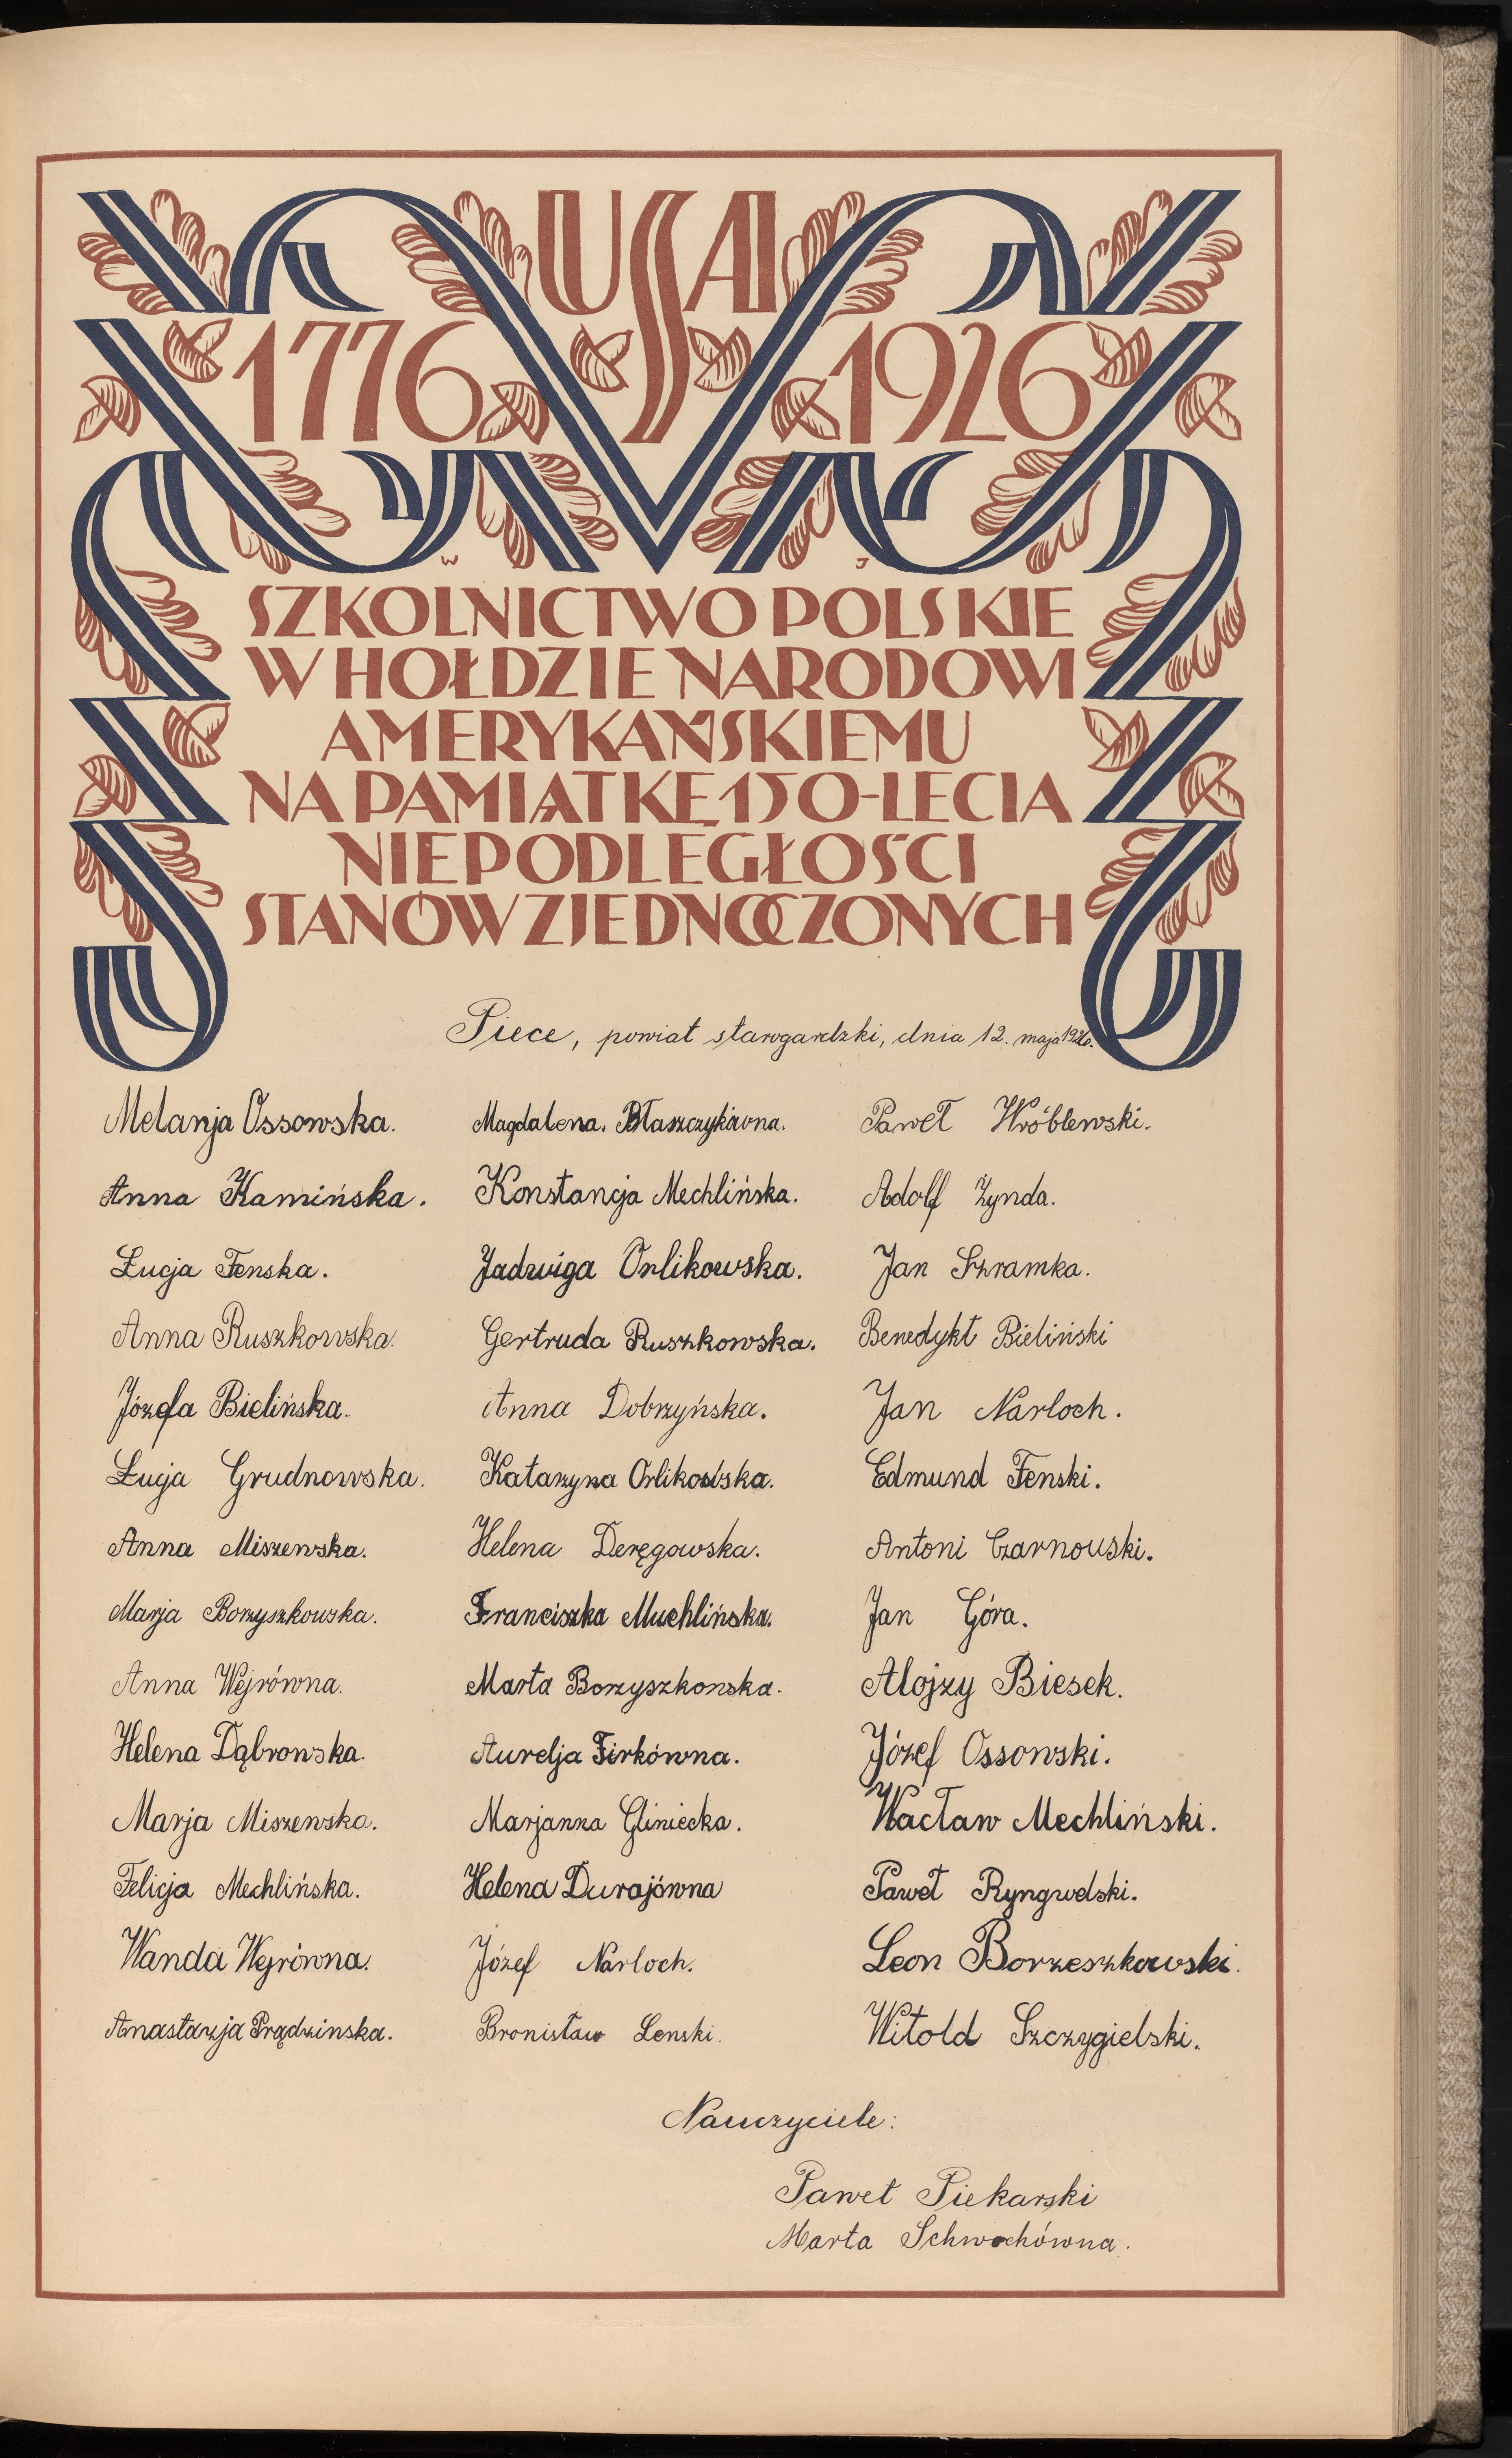 USA
1776 1926
W J
SZKOLNICTWO POLSKIE
W HOŁDZIE NARODOWI
AMERYKAŃSKIEMU
NA PAMIĄTKĘ 150-LECIA
NIEPODLEGŁOŚCI
STANÓW ZJEDNOCZONYCH
Piece, powiat starogardzki, dnia 12. maja 1926.
Melanja Ossowska.
Anna Kamińska.
Łucja Fenska.
Anna Ruszkowska.
Józefa Bielińska.
Łucja Grudnowska.
Anna Miszewska.
Marja Borzyszkowska.
Anna Wejrówna.
Helena Dąbrowska.
Marja Miszewska.
Felicja Mechlińska.
Wanda Wejrówna.
Anastazja Prądzinska.
Magdalena. Błaszczykówna.
Konstancja Mechlińska.
Jadwiga Orlikowska.
Gertruda Ruszkowska.
Anna Dobrzyńska.
Katarzyna Orlikowska.
Helena Deręgowska.
Franciszka Muchlińska.
Marta Borzyszkowska.
Aurelja Firkówna.
Marjanna Gliniecka.
Helena Durajówna
Józef Narloch.
Bronisław Lenski.
Paweł Wróblewski.
Adolf Żynda.
Jan Szramka.
Benedykt Bieliński
Jan Narloch.
Edmund Fenski.
Antoni Czarnouski.
Jan Góra.
Alojzy Biesek.
Józef Ossowski.
Wacław Mechliński.
Paweł Ryngwelski.
Leon Borzeszkowski.
Witold Szczygielski.
Nauczyciele:
Paweł Piekarski
Marta Schwochówna.